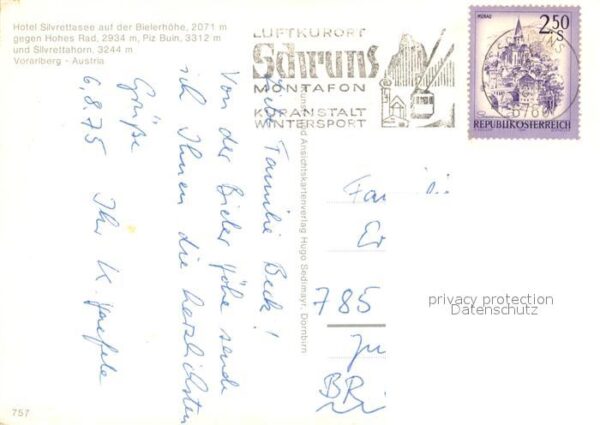 Hotel Silvrettasee auf der Bielerhöhe, 2071 m
gegen Hohes Rad, 2934 m, Piz Buin, 3312 m
und Silvrettahorn, 3244 m
Vorarlberg - Austria
LUFTKURORT
Schruns
MONTAFON
KURANSTALT
WINTERSPORT
MURAU
2.50
S
REPUBLIK ÖSTERREICH
SCHRUNS
Familie Beck!
Von der Bieler Höhe sende
ich Ihnen die herzlichsten
Grüße
6.8.75 Ihr K.
und Ansichtskartenverlag Hugo Sedlmayr, Dornbirn
785
privacy protection
Datenschutz
757